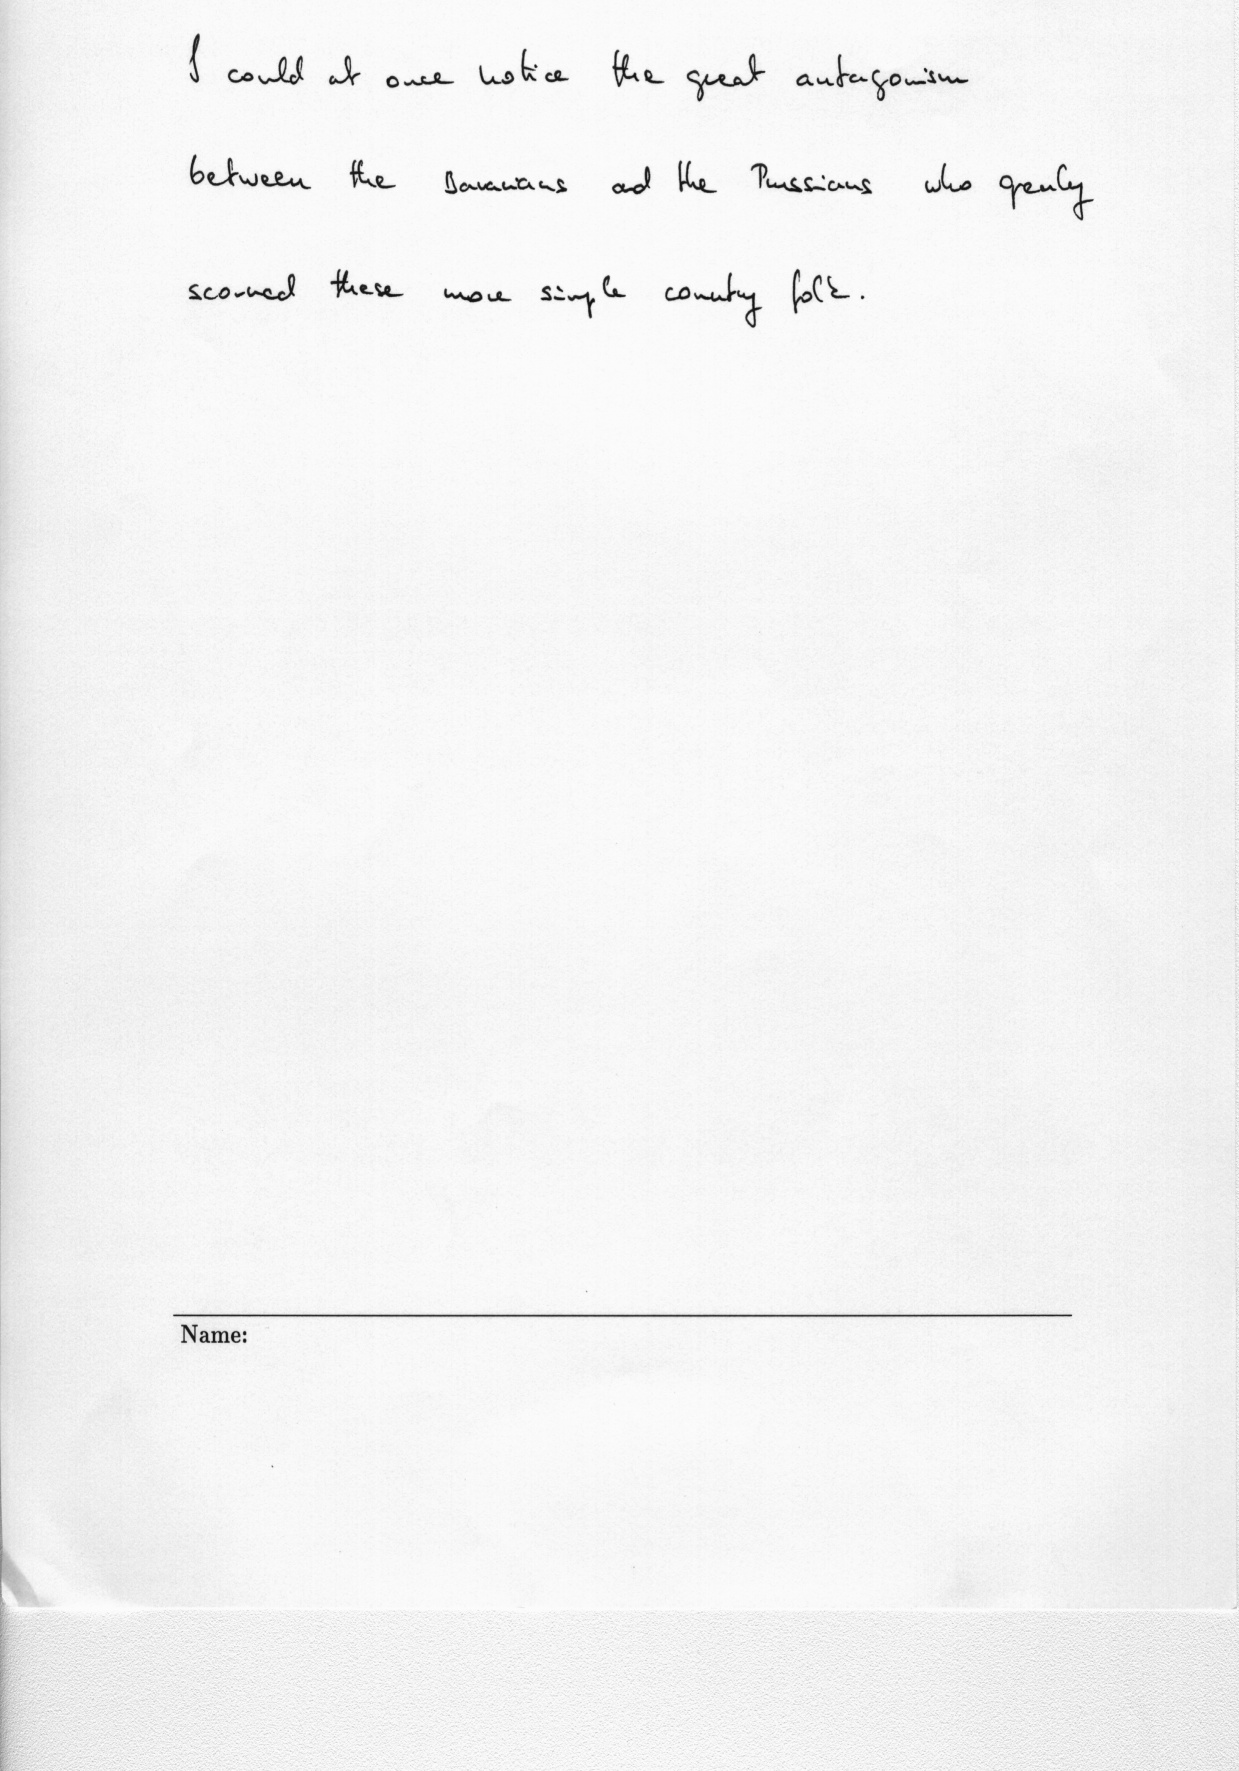 I could at once notice the great antagonism
between the Bavarians and the Prussians who greatly
scorned these more simple country folk.
Name: